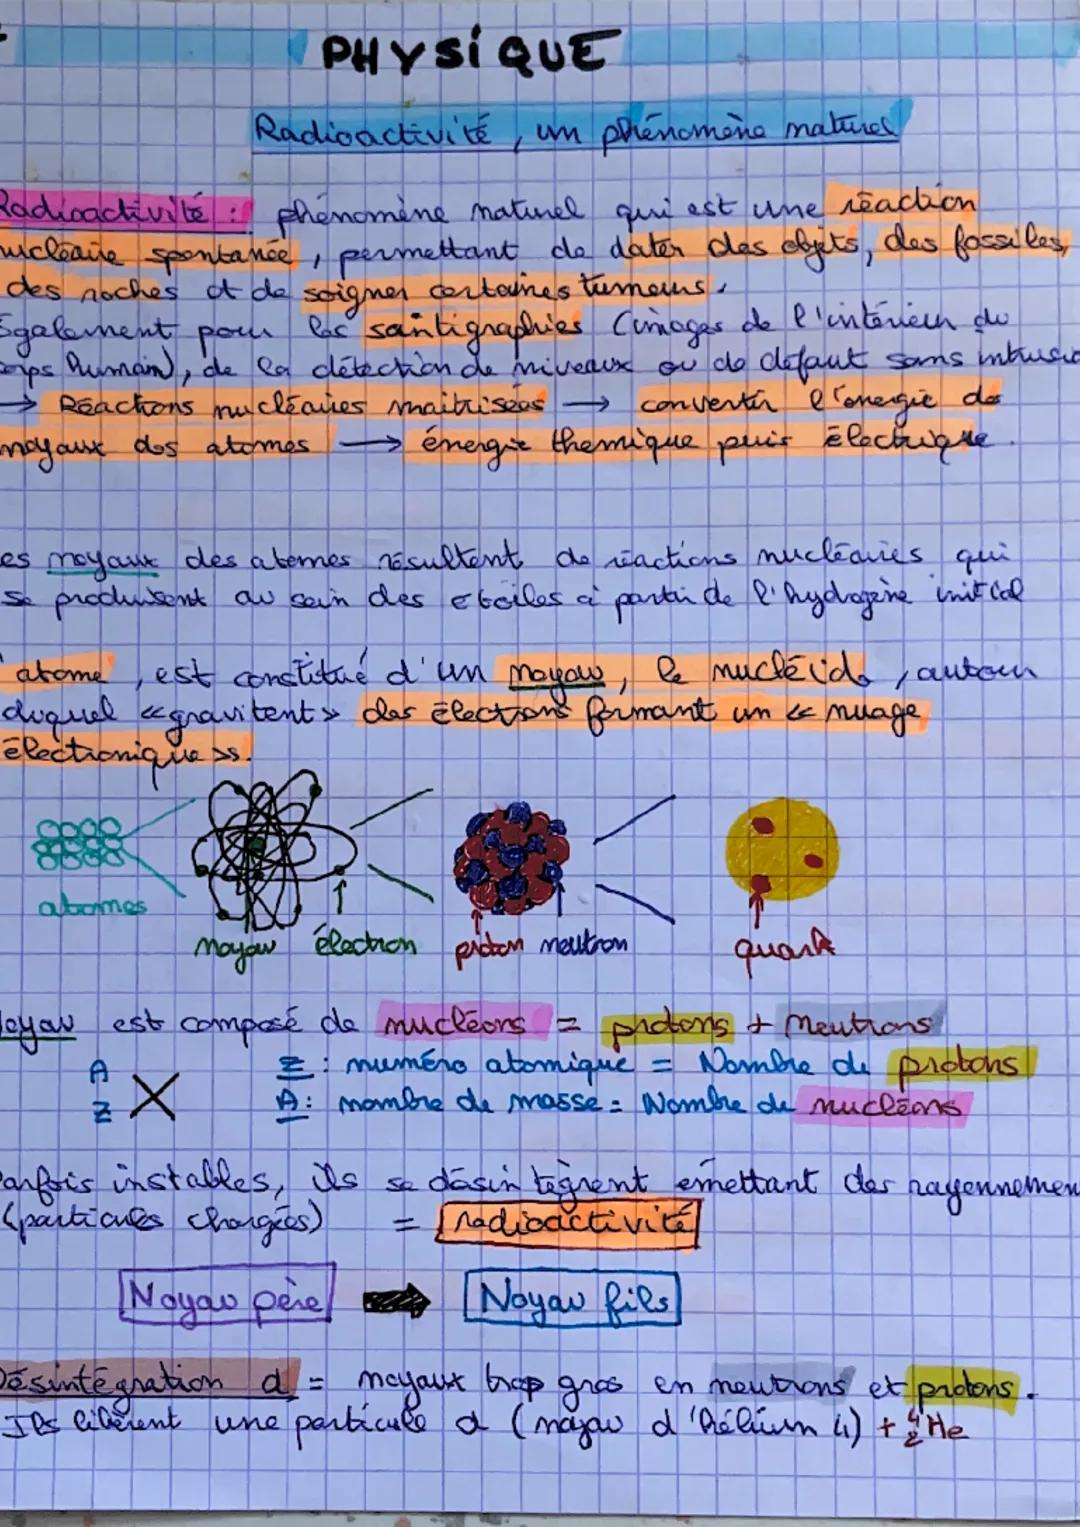 PHYSIQUE
Radioactivité, un phénomène naturel
Radioactivité : phénomène naturel qui est une réaction
nucléaire spontanée, permettant de dater des objets, des fossiles,
des roches et de soigner certaines tumeurs.
Egalement pour les santigraphies (images de l'intérieur du
corps humain), de la détection de niveaux ou de défaut sans intrusion
→ Réactions nucléaires maitrisées → convertir l'énergie des
noyaux des atomes → énergie themique puis électrique.
es noyaux des atomes résultent de réactions nucléaires qui
se produisent au sein des etoiles à partir de l'hydrogène initial
atome, est constitué d'un noyau, le nucléide, autour
duquel «gravitent» des électrons formant un « nuage
électronique ».
atomes
noyau électron proton neutron quark
Noyau est composé de nucléons = protons + neutrons
A Z X
Z : numéro atomique = Nombre de protons
A : nombre de masse = Nombre de nucléons
Parfois instables, ils se désintègrent emettant des rayonnemen
(particules chargées) = radioactivité
Noyau père Noyau fils
Désintégration α = noyaux trop gros en neutrons et protons.
Ils libèrent une particule α (noyau d'hélium 4) + ⁴₂He